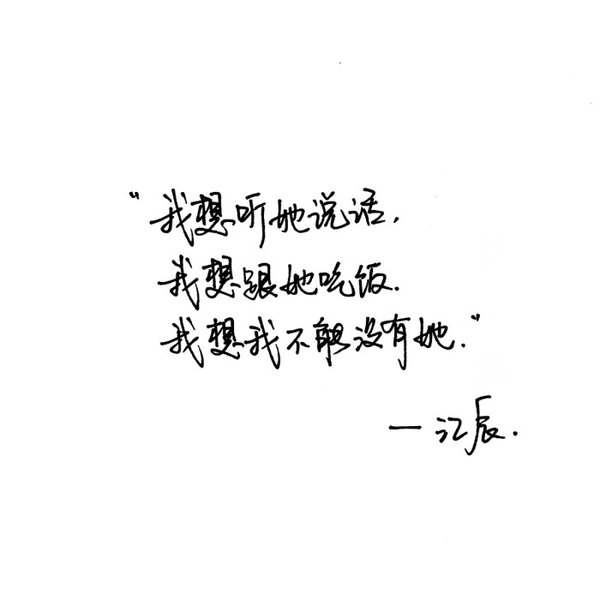 “我想听她说话.
我想跟她吃饭.
我想我不能没有她.”
—江辰.